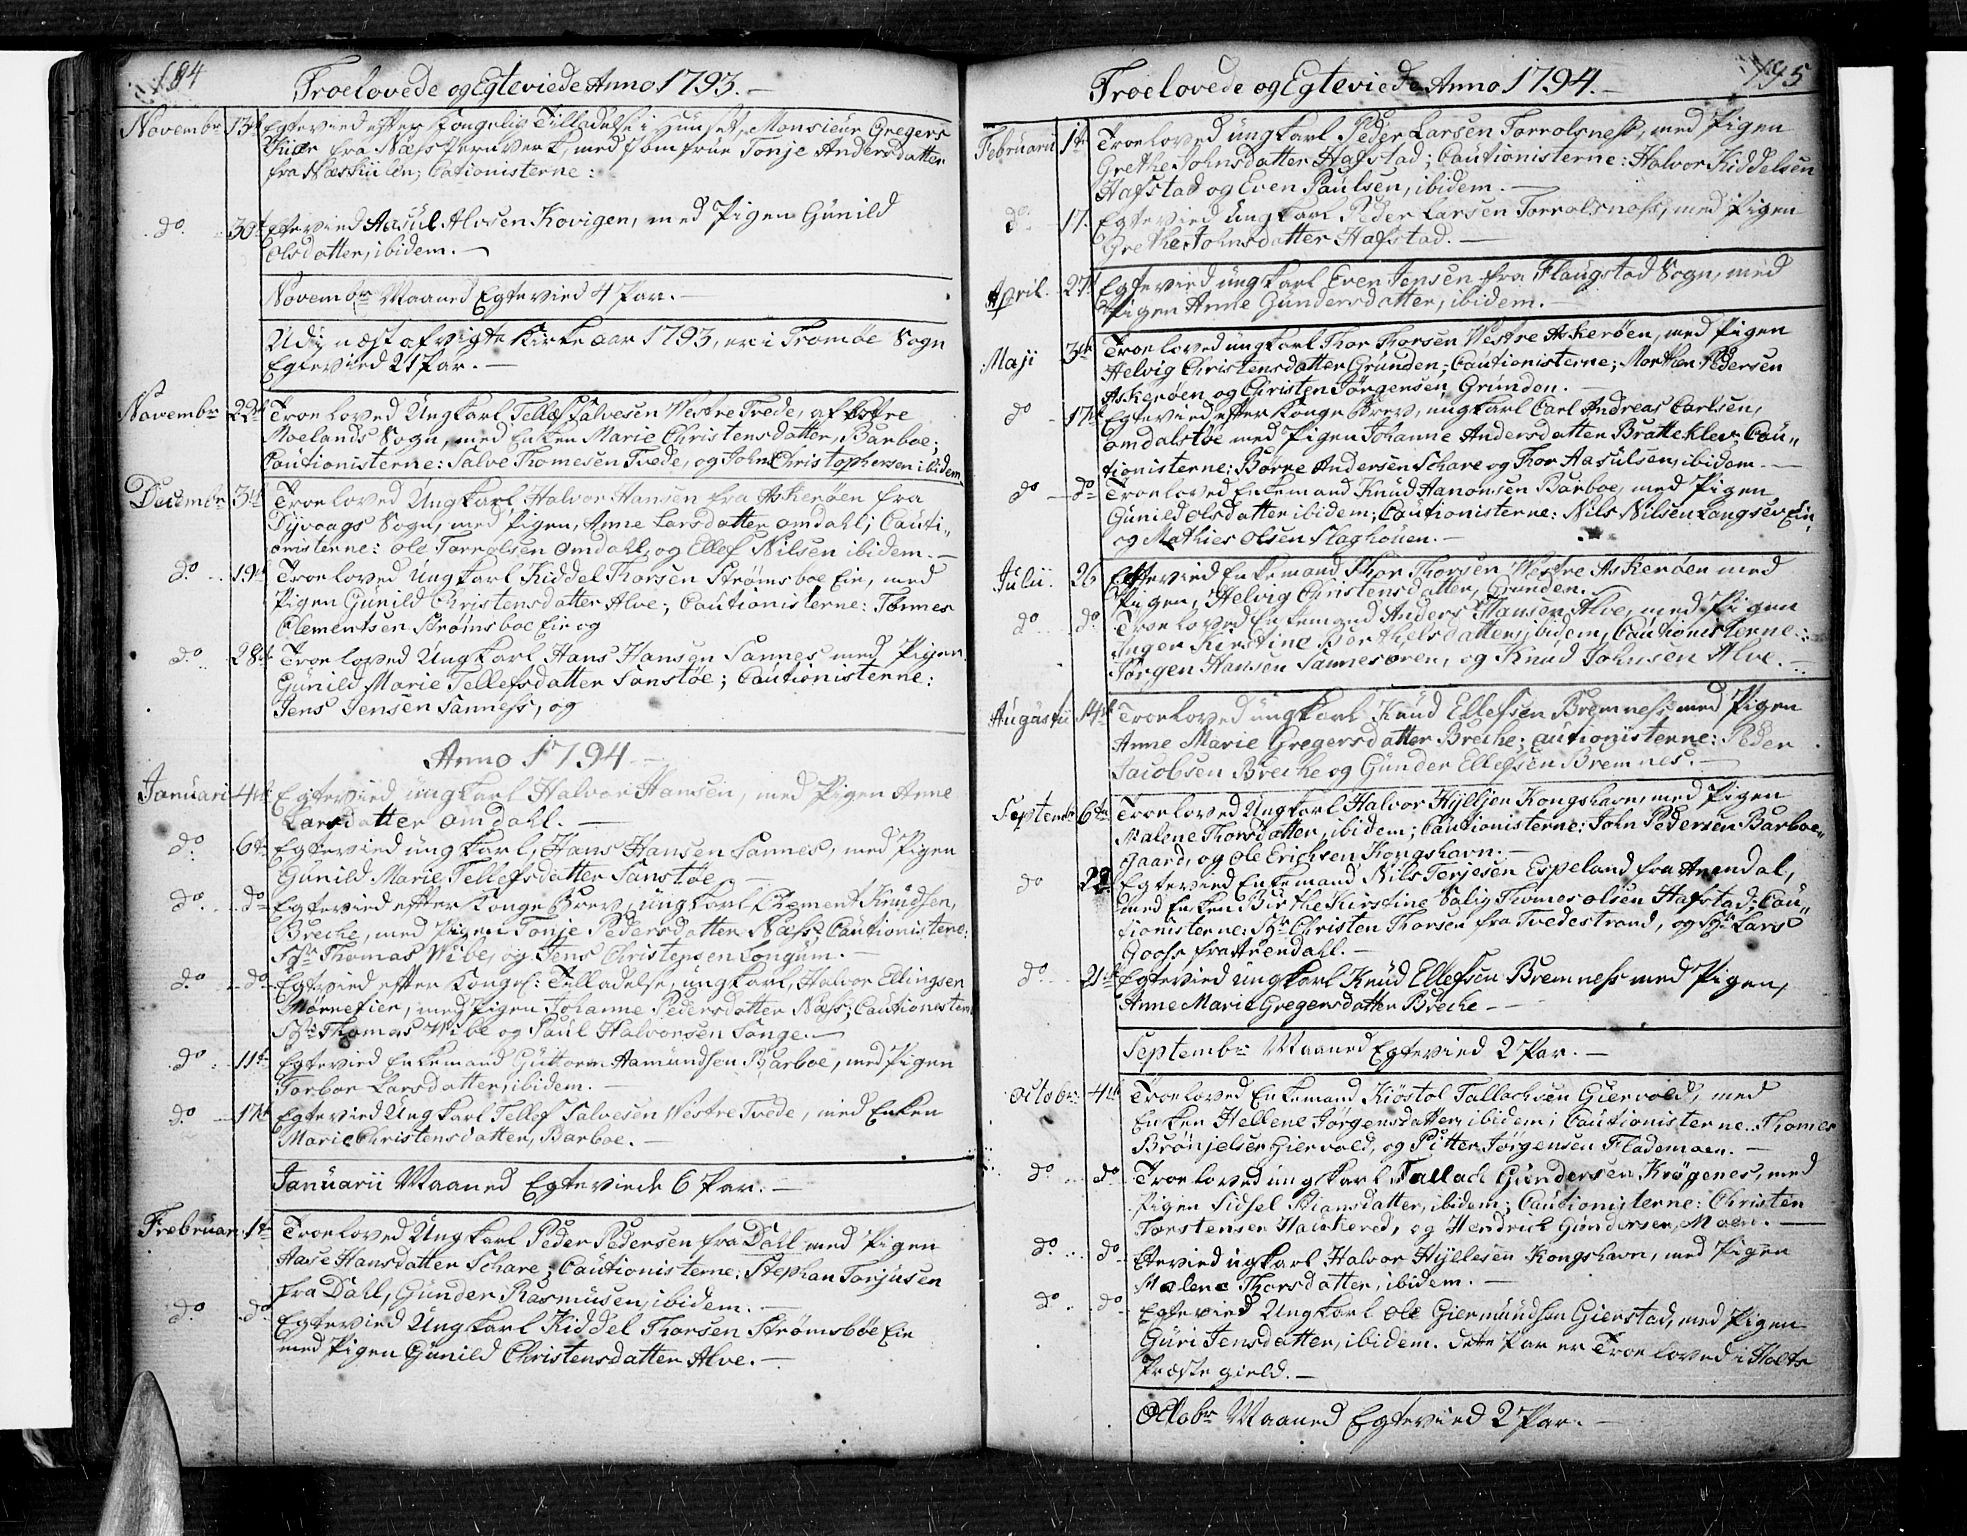 184
Troelovede og Egteviede Anno 1793.
Novembr 13de Egtevied efter Kongelig Tilladelse i Huuset, Monsieur Gregers
fra Næss Jernverk, med Jomfrue Tonje Andersdatter
fra Næskiilen; Cautionisterne:
do. 30t Egtevied Aasul Alvsen Kovigen, med Pigen Gunild
Olsdatter, ibidem.
Novembr Maaned Egtevied 4 Par.
Udi næst afvigte Kirke aar 1793, er i Tromøe Sogn
Egtevied 21 Par.
Novembr 22de Troeloved Ungkarl Tellef Salvesen Westre Tvede, af Østre
Moelands Sogn, med Enken Marie Christensdatter, Barboe;
Cautionisterne: Salve Thomesen Tvede, og John Christophersen ibidem
Decembr 3de Troeloved Ungkarl Halvor Hansen fra Askerøen fra
Dyvaags Sogn, med Pigen, Anne Larsdatter Omdahl; Cauti-
onisterne: Ole Torrolsen Omdahl, og Ellef Nilsen ibidem.
do 19de Troeloved Ungkarl Kiddel Thorsen Strømsboe Eie, med
Pigen Gunild Christensdatter Alve; Cautionisterne: Tønnes
Clementsen Strømsboe Eie og
do 28de Troeloved Ungkarl Hans Hansen Sannes med Pigen
Gunild Marie Tellefsdatter Sanstøe; Cautionisterne:
Jens Jensen Sanness, og
Anno 1794
Januari 4de Egtevied ungkarl Halvor Hansen, med Pigen Anne
Larsdatter Omdahl.
do. 6te Egtevied ungkarl, Hans Hansen Sannes, med Pigen
Gunild Marie Tellefsdatter Sanstøe
do. do Egtevied efter Konge Brev, ungkarl Clement Knudsen,
Breche, med Pigen Tonje Pedersdatter Næss; Cautionisterne:
Sr Thomas Wibe, og Jens Christensen Longum.
do. do Egtevied efter Kongel: Tilladelse, ungkarl, Halvor Ellingsen
Mørnefier, med Pigen Johanne Pedersdatter Næss; Cautionisterne
Sr Thomas Wibe og Paul Halvorsen Songe.
do. 11te Egtevied Enkemand Guttorm Aamundsen Barboe, med Pigen
Torbor Larsdatter, ibidem.
do. 17de Egtevied Ungkarl Tellef Salvesen Westre Tvede, med Enken
Marie Christensdatter, Barboe.
Januarii Maaned Egteviede 6 Par.
Frebruar. 1te Troeloved Ungkarl Peder Pedersen fra Dahl med Pigen
Aase Hansdatter Schare; Cautionisterne: Stephan Torjusen
fra Dahl, Gunder Rasmusen, ibidem.
do. do. Egtevied Ungkarl Kiddel Thorsen Strømsbøe Eie
med Pigen Gunild Christensdatter Alve.
195
Troelovede og Egteviede Anno 1794.
Februarii 1te Troeloved ungkarl Peder Larsen Torrolsness, med Pigen
Grethe Johnsdatter Hafstad; Cautionisterne: Halvor Kiddelsen
Hafstad og Even Paulsen, ibidem.
do. 17. Egtevied Ungkarl Peder Larsen Torrolsness, med Pigen
Grethe Johnsdatter Hafstad.
April. 27t Egtevied ungkarl Even Jensen fra Flaugstad Sogn, med
Pigen Anne Gundersdatter, ibidem.
Maji 3de Troeloved ungkarl Thor Thorsen Westre Askerøen, med Pigen
Helvig Christensdatter Grunden; Cautionisterne; Morthen Pedersen
Askerøen og Christen Jørgensen, Grunden.
do 17de Egtevied efter Konge Brev, ungkarl Carl Andreas Carlsen,
Omdalstøe med Pigen Johanne Andersdatter Bratteklev; Cau-
tionisterne: Børre Andersen Schare og Thor Aasulsen, ibidem.
do do Troeloved Enkemand Knud Aanonsen Barboe, med Pigen
Gunild Olsdatter ibidem; Cautionisterne: Nils Nilsen Langsev Eie,
og Mathies Olsen Slaghouen.
Julii. 26 Egtevied Enkemand Thor Thorsen Westre Askerøen med
Pigen, Helvig Christensdatter, Grunden.
do do Troeloved Enkemand Anders Hansen Alve, med Pigen
Inger Kirstine Berthelsdatter, ibidem, Cautionisterne:
Jørgen Hansen Sannesøren, og Knud Johnsen Alve.
Augustii 14de Troeloved ungkarl Knud Ellefsen Bremness med Pigen
Anne Marie Gregersdatter Breche; Cautionisterne: Peder
Jacobsen Breche og Gunder Ellefsen Bremnes.
Septembr 6te Troeloved Ungkarl Halvor Hylljen Kongshavn, med Pigen
Malene Thorsdatter, ibidem; Cautionisterne: John Pedersen Barboe-
gaard, og Ole Erichsen Kongshavn.
do 22 Egtevied Enkemand Nils Terjesen Espeland fra Arendal,
med Enken Birthe Kirstine Salig Thomes Olsen Hafstad; Cau-
tionisterne: Sr Christen Thorsen fra Tvedestrand, og Sr Lars
Gooss fra Arendahl.
do. 21de Egtevied Ungkarl Knud Ellefsen Bremness med Pigen,
Anne Marie Gregersdatter Breche
Septembr Maaned Egtevied 2 Par.
Octobr. 4de Troeloved Enkemand Kiøstol Tallachsen Giervold, med
Enken Hellene Jørgensdatter, ibidem; Cautionisterne. Thomes
Brønjelsen Giervold, og Pitter Jørgensen Flademoen.
do. do Troeloved ungkarl Tallach Gundersen Krøgenes, med
Pigen Sidsel Stiansdatter, ibidem; Cautionisterne: Christen
Torstensen Haukered, og Hendrich Gundersen, Moen.
do. do Etevied ugkarl Halvor Hyllesen Kongshavn, med Pigen
Malene Thorsdatter, ibidem.
do. do Egtevied Ungkarl Ole Giermundsen Gierstad, med Pigen
Guri Jensdatter, ibidem. dette Par er Troeloved i Holts
Præstegield.
Octobr Maaned Egtevied 2 Par.